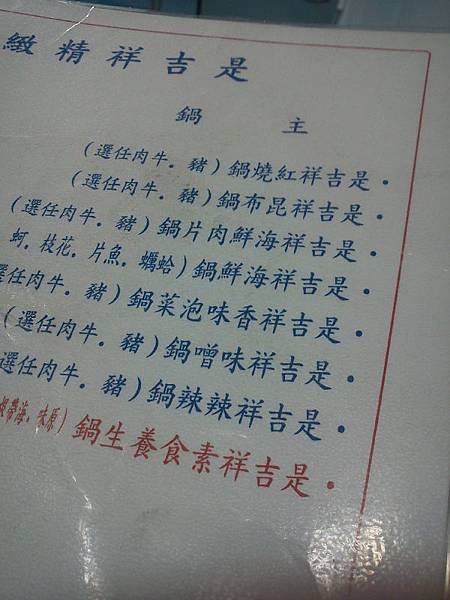 是吉祥精緻
主鍋
•是吉祥紅燒鍋(豬.牛肉任選)
•是吉祥昆布鍋(豬.牛肉任選)
•是吉祥海鮮肉片鍋(豬.牛肉任選)
•是吉祥海鮮鍋(蛤蠣.魚片.花枝.蚵
•是吉祥香味泡菜鍋(豬.牛肉任選
•是吉祥味噌鍋(豬.牛肉任選)
•是吉祥辣辣鍋(豬.牛肉任選
•是吉祥素食養生鍋(原味.海帶